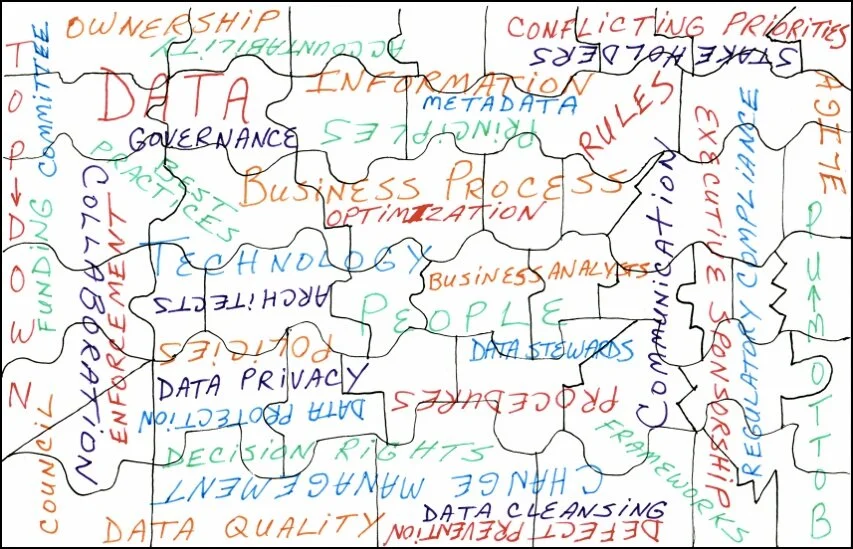 OWNERSHIP
CONFLICTING PRIORITIES
ACCOUNTABILITY
STAKEHOLDERS
TOP→DOWN
COMMITTEE
FUNDING
COUNCIL
DATA
GOVERNANCE
INFORMATION
METADATA
PRINCIPLES
RULES
AGILE
EXECUTIVE SPONSORSHIP
REGULATORY COMPLIANCE
BEST
PRACTICES
BUSINESS PROCESS
OPTIMIZATION
COLLABORATION
ENFORCEMENT
COMMUNICATION
BOTTOM→UP
TECHNOLOGY
BUSINESS ANALYSTS
ARCHITECTS
PEOPLE
POLICIES
DATA STEWARDS
DATA PRIVACY
DATA PROTECTION
PROCEDURES
DECISION RIGHTS
FRAMEWORKS
CHANGE MANAGEMENT
DATA CLEANSING
DATA QUALITY
DEFECT PREVENTION